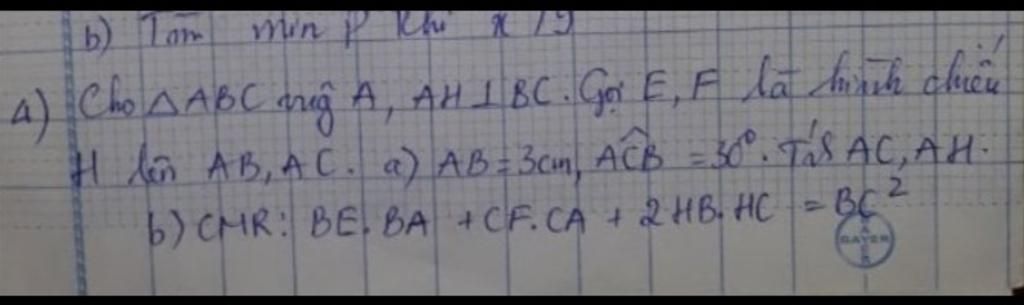 b) Tìm min P khi x > 9
4) Cho △ABC vug A, AH⊥BC. Gọi E, F là hình chiếu
H lên AB, AC. a) AB = 3cm, AĈB = 30°. Tính AC, AH.
b) CMR: BE.BA + CF.CA + 2HB.HC = BC²
BAYER